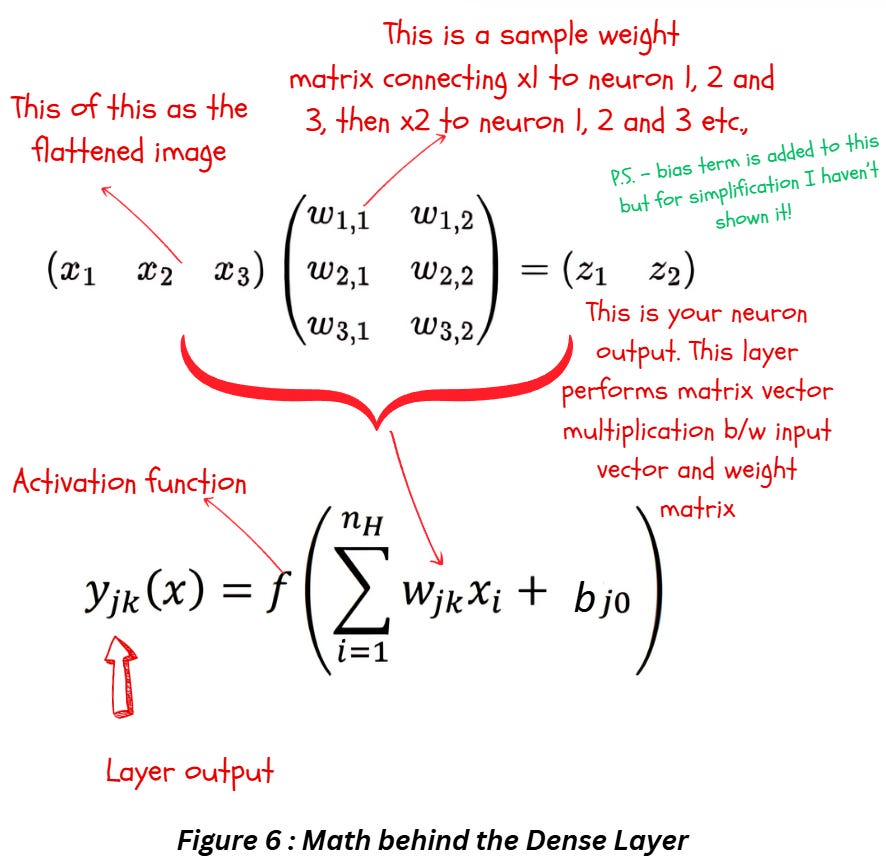 This is a sample weight
matrix connecting x1 to neuron 1, 2 and
3, then x2 to neuron 1, 2 and 3 etc.,
This of this as the
flattened image
P.S. - bias term is added to this
but for simplification I haven't
shown it!
(x₁ x₂ x₃) (w₁,₁ w₁,₂
w₂,₁ w₂,₂
w₃,₁ w₃,₂) = (z₁ z₂)
This is your neuron
output. This layer
performs matrix vector
multiplication b/w input
vector and weight
matrix
Activation function
y_{jk}(x) = f(∑_{i=1}^{n_H} w_{jk}x_i + b_{j0})
Layer output
Figure 6 : Math behind the Dense Layer